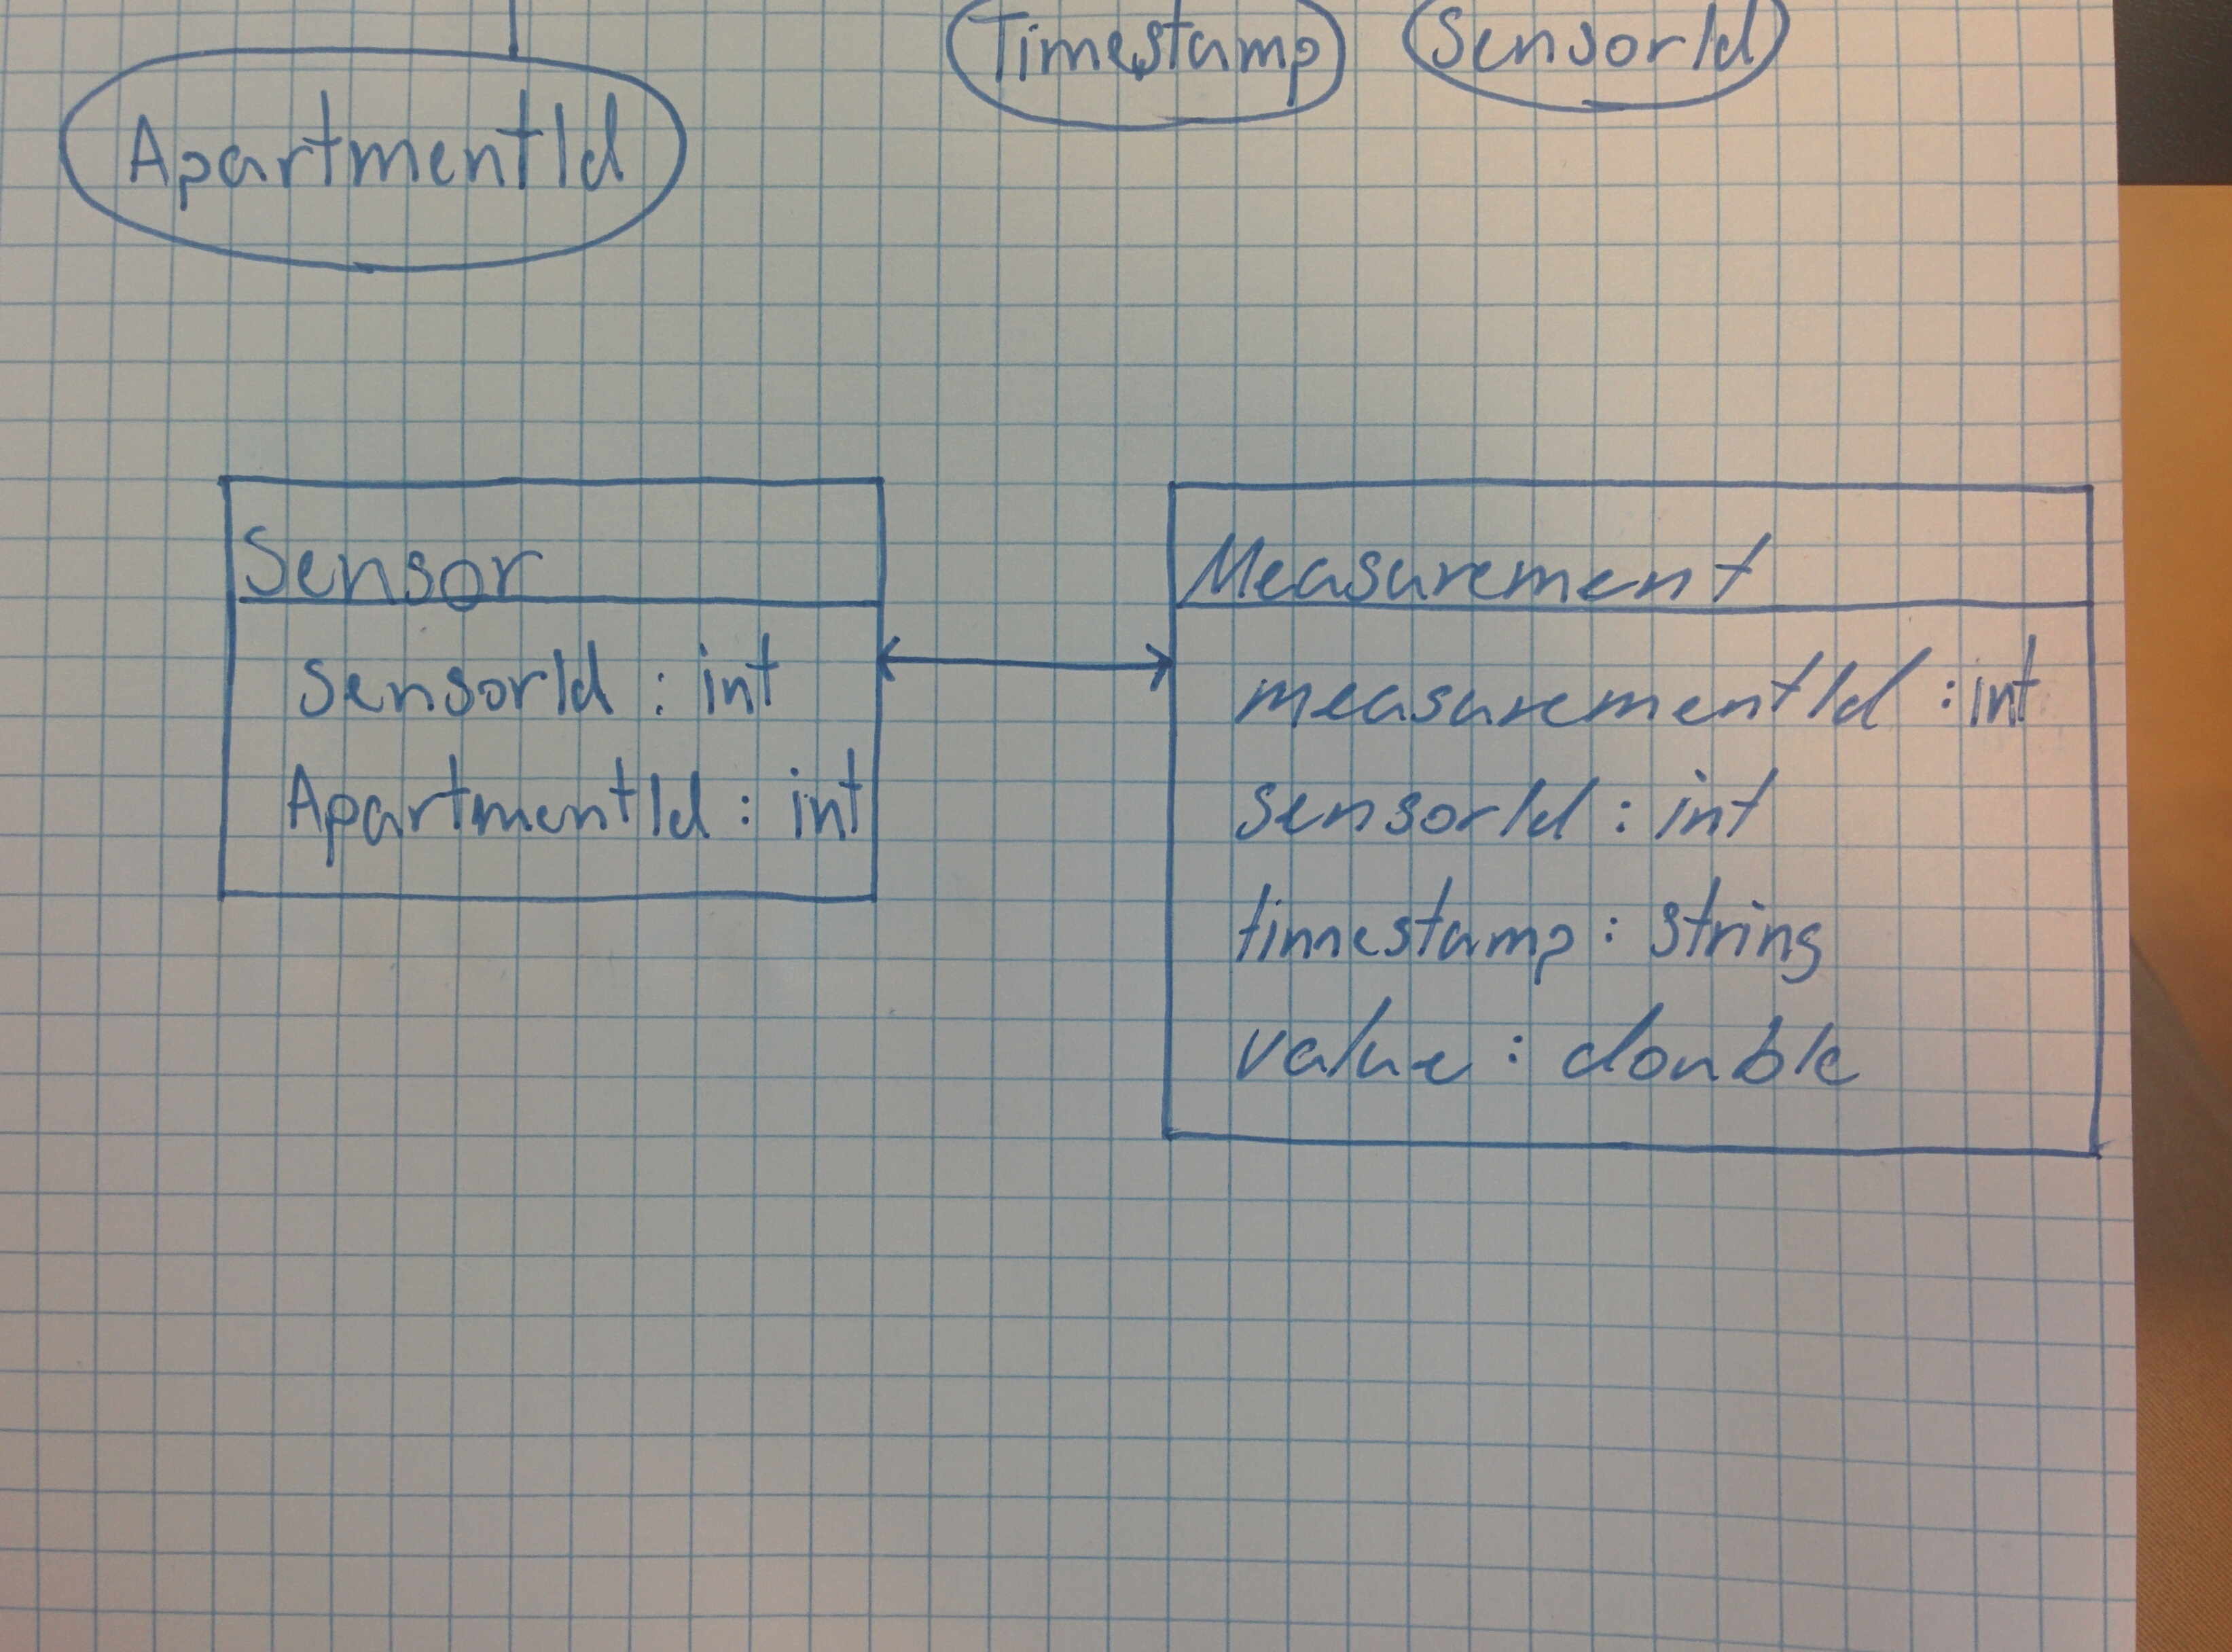 Timestamp SensorId
ApartmentId
Sensor
sensorId : int
ApartmentId : int
Measurement
measurementId : int
sensorId : int
timestamp : string
value : double